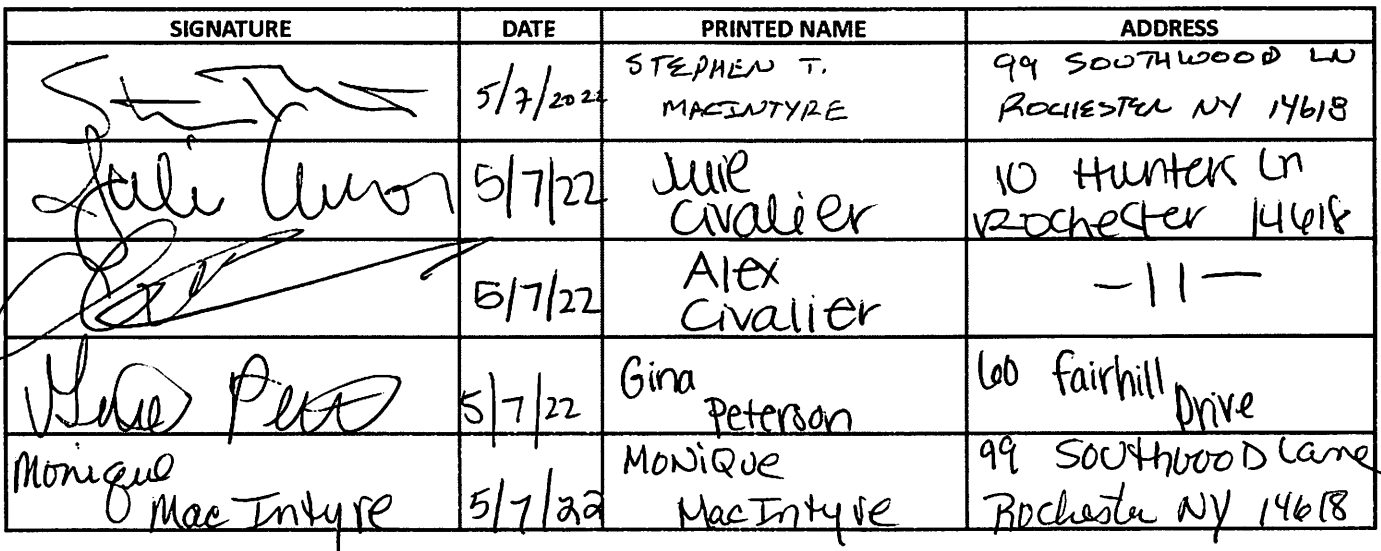 SIGNATURE DATE PRINTED NAME ADDRESS
5/7/2022 STEPHEN T. MACINTYRE 99 SOUTHWOOD LN
ROCHESTER NY 14618
5/7/22 Julie Civalier 10 Hunters Ln
Rochester 14618
5/7/22 Alex Civalier -11-
5/7/22 Gina Peterson 60 Fairhill Drive
Monique MacIntyre 5/7/22 MONiQUe MacIntyre 99 Southwood Lane
Rochester NY 14618